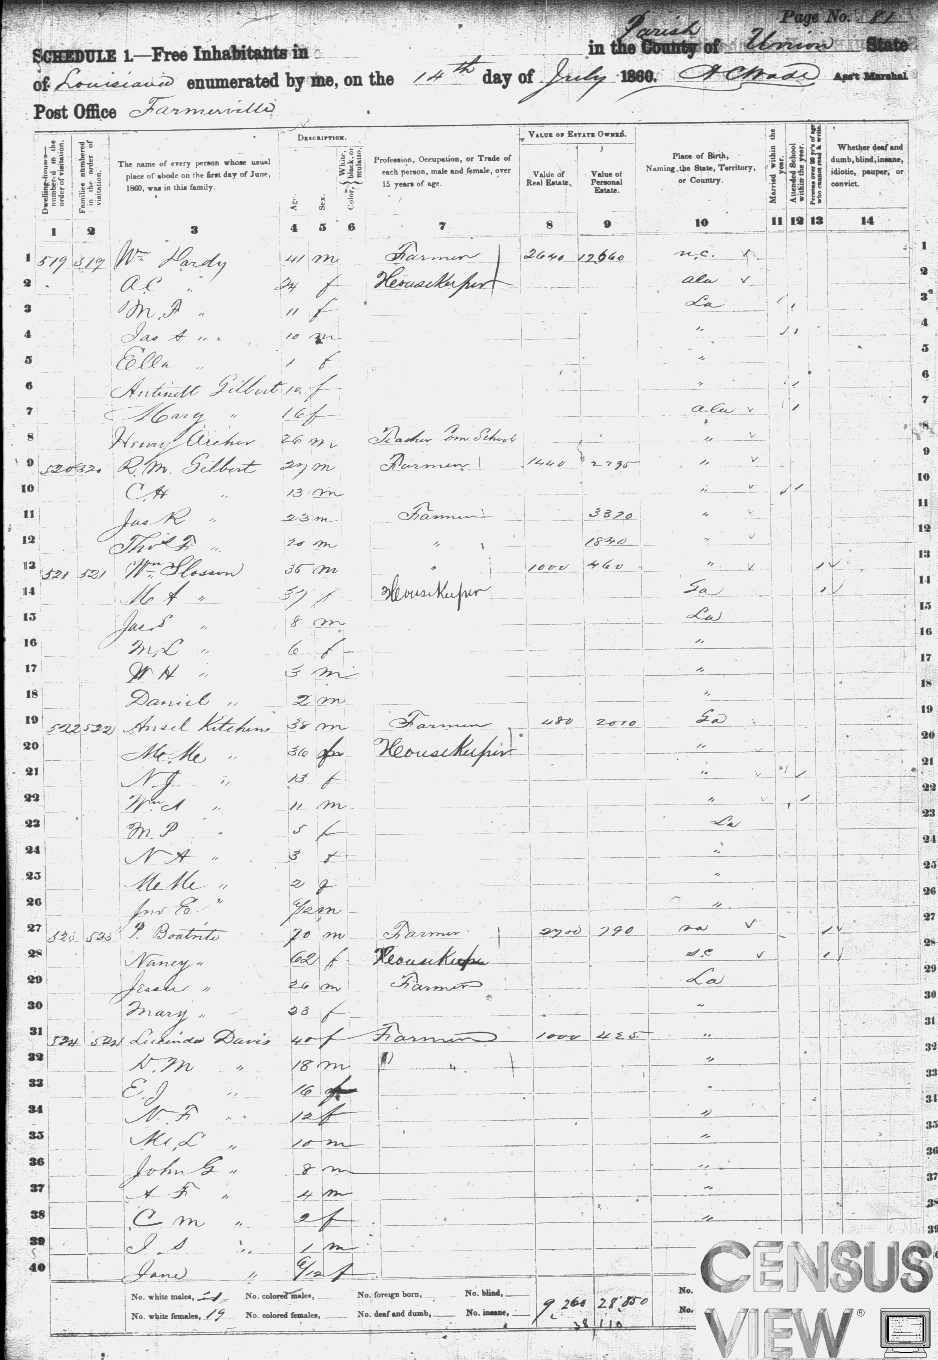 Page No. 81
SCHEDULE 1.—Free Inhabitants in in the County of Parish Union State
of Louisiana enumerated by me, on the 14th day of July 1860. A C Wade Ass't Marshal
Post Office Farmerville
Dwelling-houses—numbered in the order of visitation.
Families numbered in the order of visitation.
The name of every person whose usual place of abode on the first day of June, 1860, was in this family.
DESCRIPTION.
Age.
Sex.
Color, White, black, or mulatto.
Profession, Occupation, or Trade of each person, male and female, over 15 years of age.
VALUE OF ESTATE OWNED.
Value of Real Estate.
Value of Personal Estate.
Place of Birth, Naming the State, Territory, or Country.
Married within the year.
Attended School within the year.
Persons over 20 y'rs of age who cannot read & write.
Whether deaf and dumb, blind, insane, idiotic, pauper, or convict.
1 2 3 4 5 6 7 8 9 10 11 12 13 14
1 519 519 Wm Hardy 41 m Farmer 2640 12660 n.c. 1
2 A C " 24 f Housekeeper ala 2
3 M. A " 11 f La 3
4 Jas A " 10 m " 4
5 Ella " 1 f " 5
6 Antinett Gilbert f " 6
7 Mary " 16 f ala 7
8 Henry Archer 26 m Teacher Com School " 8
9 520 520 R. M. Gilbert 27 m Farmer 1440 2795 " 9
10 C H " 13 m " 10
11 Jas R " 23 m Farmer 3370 " 11
12 Thos F " 20 m " 1840 " 12
13 521 521 Wm Slosson 36 m " 1000 460 " 13
14 M A " 37 f Housekeeper Ga 14
15 Jas S " 8 m La 15
16 M. L " 6 f " 16
17 W H " 3 m " 17
18 Daniel " 2 m " 18
19 522 522 Ansel Kitchens 38 m Farmer 480 2010 Ga 19
20 Mc Mc " 36 f Housekeeper " 20
21 N. J " 13 f " 21
22 Wm A " 11 m " 22
23 M P " 5 f La 23
24 N A " 3 f " 24
25 Mc Mc " 2 f " 25
26 Jno E. " 6/12 m " 26
27 523 523 P. Boatrite 70 m Farmer 2700 790 27
28 Nancy " 62 f Housekeeper s.c 28
29 Jessee " 26 m Farmer La 29
30 Mary " 23 f " 30
31 524 524 Lucinda Davis 40 f Farmer 1000 425 " 31
32 D. M " 18 m " " 32
33 E. J " 16 f " 33
34 N. F " 12 f " 34
35 Mc. L " 10 m " 35
36 John G " 8 m " 36
37 A F " 4 m " 37
38 C m " 2 f " 38
39 J. S " 1 m 39
40 Jane " 6/12 f
No. white males, 21 No. colored males, No. foreign born, No. blind, No.
No. white females, 19 No. colored females, No. deaf and dumb, No. insane, 9 260 28 850 No.
38 110
CENSUS
VIEW®